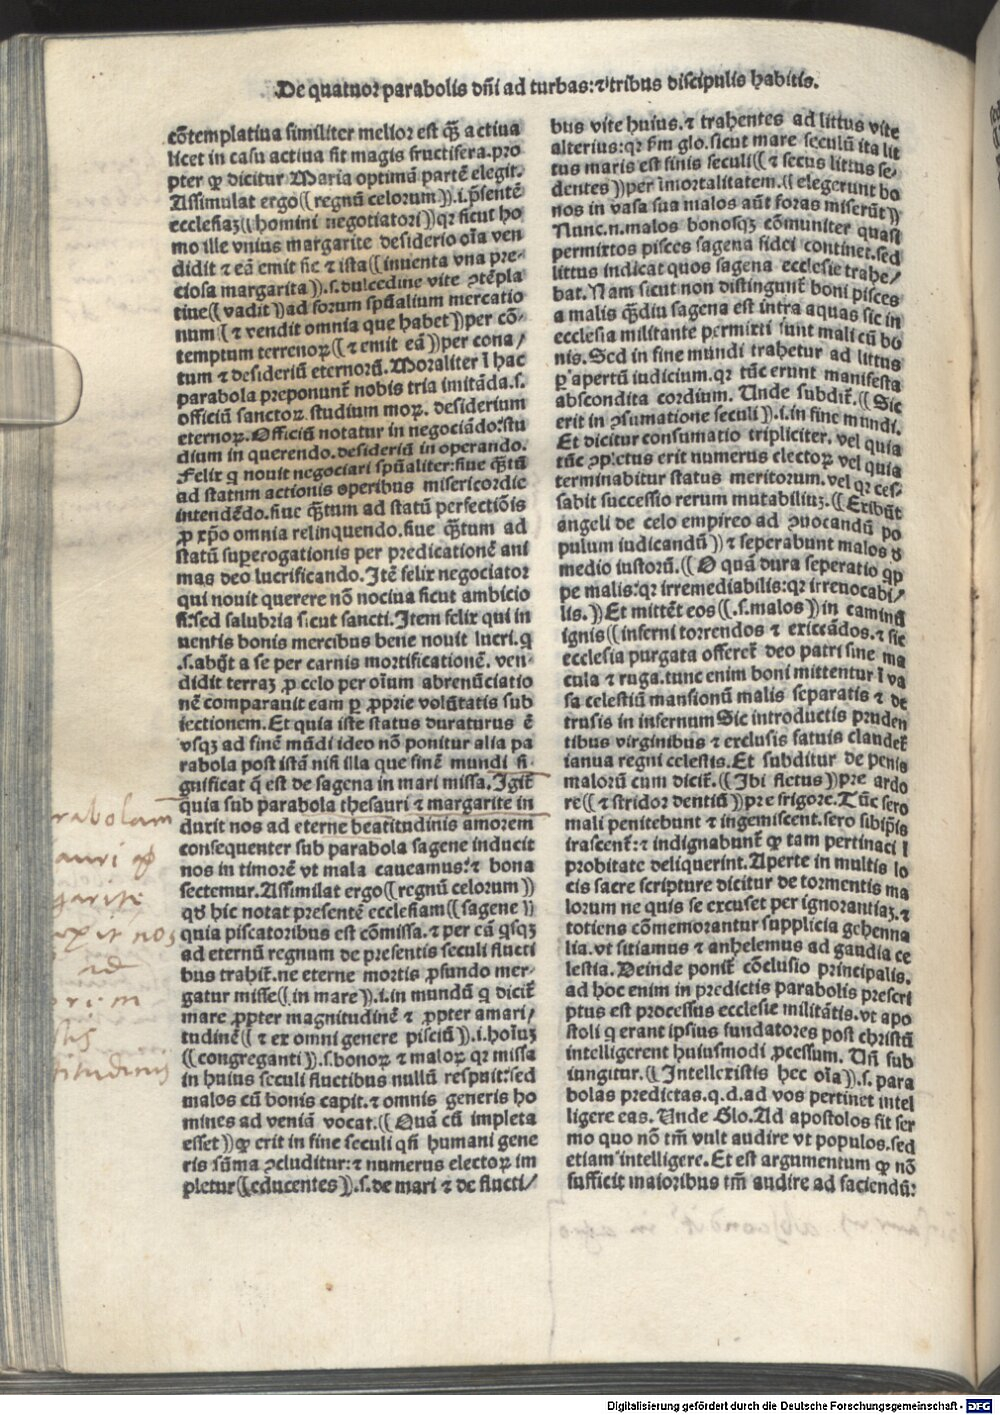 De quatuor parabolis dñi ad turbas: ⁊ tribus discipulis habitis.
cōtemplatiua similiter melior est q̃ʒ actiua
licet in casu actiua sit magis fructifera. pro
pter qď dicitur Maria optimā partē elegit.
Assimulat ergo (( regnū celorum )) .i. p̃sentē
ecclesiaʒ (( homini negotiatori )) qꝛ sicut ho
mo ille vnius margarite desiderio oĩa ven
didit ⁊ eā emit sic ⁊ ista (( inuenta vna pre-
ciosa margarita )) .s. dulcedine vite ꝯtēpla
tiue (( vadit )) ad forum spũalium mercatio
num (( ⁊ vendit omnia que habet )) per cō-
temptum terrenoꝝ (( ⁊ emit eā )) per cona/
tum ⁊ desideriū eternorū. Moraliter ī hac
parabola preponunt̃ nobis tria imitāda .s.
officiū sanctoꝝ. studium moꝝ. desiderium
eternoꝝ. Officiū notatur in negociādo: stu
dium in querendo. desideriū in operando.
Felix q nouit negociari spũaliter: siue q̃ʒtū
ad statum actionis operibus misericordie
intendēdo. siue q̃ʒtum ad statū perfectiōis
ꝓ xp̃o omnia relinquendo. siue q̃ʒtum ad
statū superogationis per predicationē ani
mas deo lucrificando. Itē felix negociator
qui nouit querere nō nociua sicut ambicio
si: sed salubria sicut sancti. Item felix qui in
uentis bonis mercibus bene nouit lucri. q
.s. abijt a se per carnis mortificationē. ven-
didit terraʒ ꝓ celo per oĩum abrenūciatio
nē comparauit eam ꝑ ꝓprie volūtatis sub
iectionem. Et quia iste status duraturus ē
vsqʒ ad finē mūdi ideo nō ponitur alia pa
rabola post istā nisi illa que finē mundi si-
gnificat q̃ est de sagena in mari missa. Igit̃
quia sub parabola thesauri ⁊ margarite in
duxit nos ad eterne beatitudinis amorem
consequenter sub parabola sagene inducit
nos in timorē vt mala caueamus: ⁊ bona
sectemur. Assimilat ergo (( regnū celorum ))
qď hic notat presentē ecclesiam (( sagene ))
quia piscatoribus est cōmissa. ⁊ per cā q̃sqʒ
ad eternū regnum de presentis seculi flucti
bus trahit̃. ne eterne mortis ꝓfundo mer-
gatur misse (( in mare )) .i. in mundū q dicit̃
mare ꝓpter magnitudinē ⁊ ꝓpter amari/
tudinē (( ⁊ ex omni genere pisciū )) .i. hoĩuʒ
(( congreganti )) .s. bonoꝝ ⁊ maloꝝ qꝛ missa
in huius seculi fluctibus nullū respuit: sed
malos cū bonis capit. ⁊ omnis generis ho
mines ad veniā vocat. (( Quā cū impleta
esset )) qď erit in fine seculi qñ humani gene
ris sūma ꝯcluditur: ⁊ numerus electoꝝ im
pletur (( educentes )) .s. de mari ⁊ de flucti/
bus vite huius. ⁊ trahentes ad littus vite
alterius: qꝛ ẜm glo. sicut mare seculū ita lit
tus maris est finis seculi (( ⁊ secus littus se-
dentes )) per īmortalitatem. (( elegerunt bo
nos in vasa sua malos aūt foras miserūt ))
Nunc .n. malos bonosqʒ cōmuniter quasi
permixtos pisces sagena fidei continet. sed
littus indicat quos sagena ecclesie trahe/
bat. Nam sicut non distingunt̃ boni pisces
a malis q̃ʒdiu sagena est intra aquas sic in
ecclesia militante permixti sunt mali cū bo
nis. Sed in fine mundi trahetur ad littus
ꝑ apertū iudicium. qꝛ tūc erunt manifesta
abscondita cordium. Unde subdit̃. (( Sic
erit in ꝯsumatione seculi )) .i. in fine mundi.
Et dicitur consumatio tripliciter. vel quia
tūc ꝯpletus erit numerus electoꝝ vel quia
terminabitur status meritorum. vel qꝛ ces-
sabit successio rerum mutabiliuʒ. (( Exibūt
angeli de celo empireo ad ꝯuocandū po
pulum iudicandū )) ⁊ seperabunt malos ď
medio iustorū. (( O quā dura seperatio qꝛ
pe malis: qꝛ irremediabilis: qꝛ irreuocabi/
lis. )) Et mittēt eos (( .s. malos )) in caminū
ignis (( inferni torrendos ⁊ exiccādos. ⁊ sic
ecclesia purgata offeret̃ deo patri sine ma
cula ⁊ ruga. tunc enim boni mittentur ī va
sa celestiū mansionū malis separatis ⁊ de
trusis in infernum Sic introductis pruden
tibus virginibus ⁊ exclusis fatuis claudet̃
ianua regni celestis. Et subditur de penis
malorū cum dicit̃. (( Ibi fletus )) pre ardo
re (( ⁊ stridor dentiū )) pre frigore. Tūc sero
mali penitebunt ⁊ ingemiscent. sero sibip̃is
irascent̃: ⁊ indignabunt̃ qď tam pertinaci ī
probitate deliquerint. Aperte in multis lo
cis sacre scripture dicitur de tormentis ma
lorum ne quis se excuset per ignorantiaʒ. ⁊
totiens cōmemorantur supplicia gehenna
lia. vt sitiamus ⁊ anhelemus ad gaudia ce
lestia. Deinde ponit̃ cōclusio principalis.
ad hoc enim in predictis parabolis prescri
ptus est processus ecclesie militātis. vt apo
stoli q erant ipsius fundatores post christū
intelligerent huiusmodi ꝓcessum. Uñ sub
iungitur. (( Intellexistis hec oĩa )) .s. para
bolas predictas. q.d. ad vos pertinet intel
ligere eas. Unde Glo. Ad apostolos fit ser
mo quo nō tm̃ vult audire vt populos. sed
etiam intelligere. Et est argumentum qď nō
sufficit maioribus tm̃ audire ad faciendū:
rabolam
auri
garite
nos
ad
rem
stis
titudinis
Digitalisierung gefördert durch die Deutsche Forschungsgemeinschaft - DFG